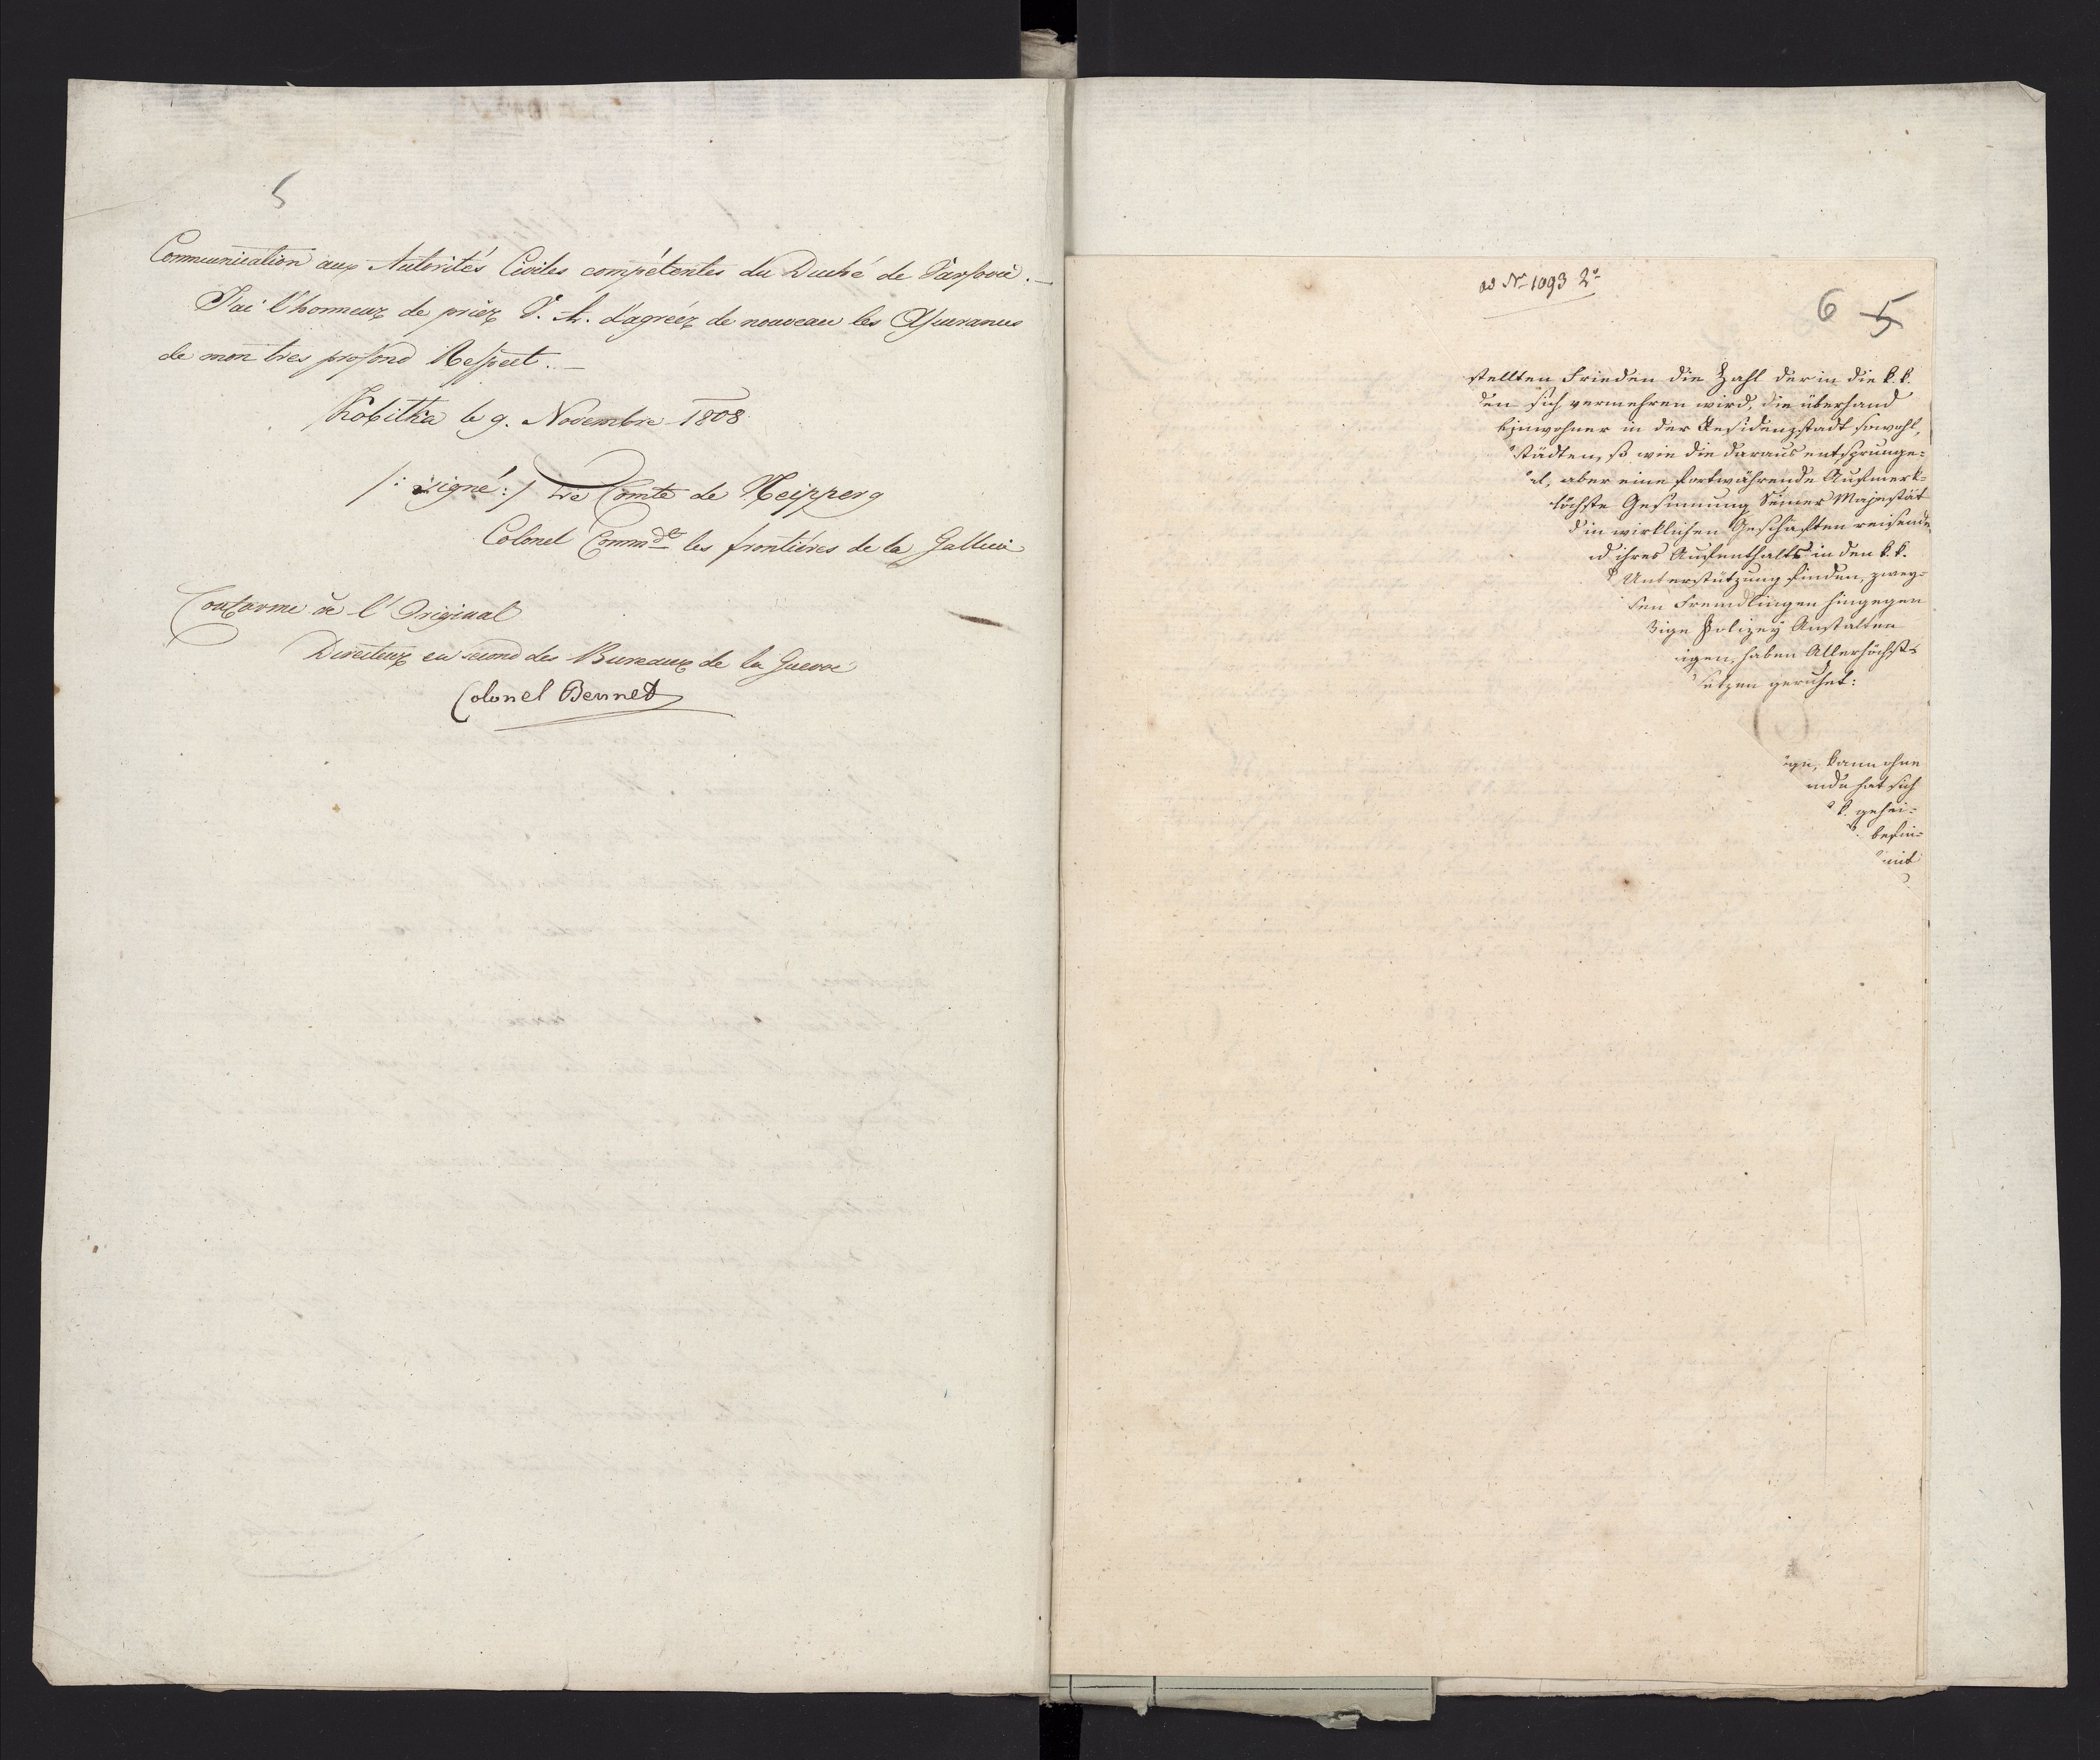 5
Communication aux Autorités Civiles compétentes du Duché de Varsovie._
J'ai l'honneur de prier V. A. d'agréer de nouveau les Assurances
de mon tres profond Respect._
Kobilka le 9. Novembre 1808
/: signé :/ Le Comte de Neipperg
Colonel Commdt les frontières de la Gallicie
Conforme à l'Original
Directeur en second des Bureaux de la Guerre
Colonel Bennet
ad No 1093 2o
6 5
stellten Frieden die Zahl der in die k. k.
den sich vermehren wird, die überhand
Einwohner in der Residenzstadt sowohl,
städten, so wie die daraus entsprunge=
aber eine fortwährende Aufmerk=
höchste Gesinnung Seiner Majestät
in wirklichen Geschäften reisende
d ihres Aufenthalts in den k. k.
Unterstützung finden, zwey=
sen Fremdlingen hingegen
ige Polizey Anstalten
igen, haben Allerhöchst
setzen geruhet:
ige, kann ohne
ende hat sich
k. gehei=
befin=
mit